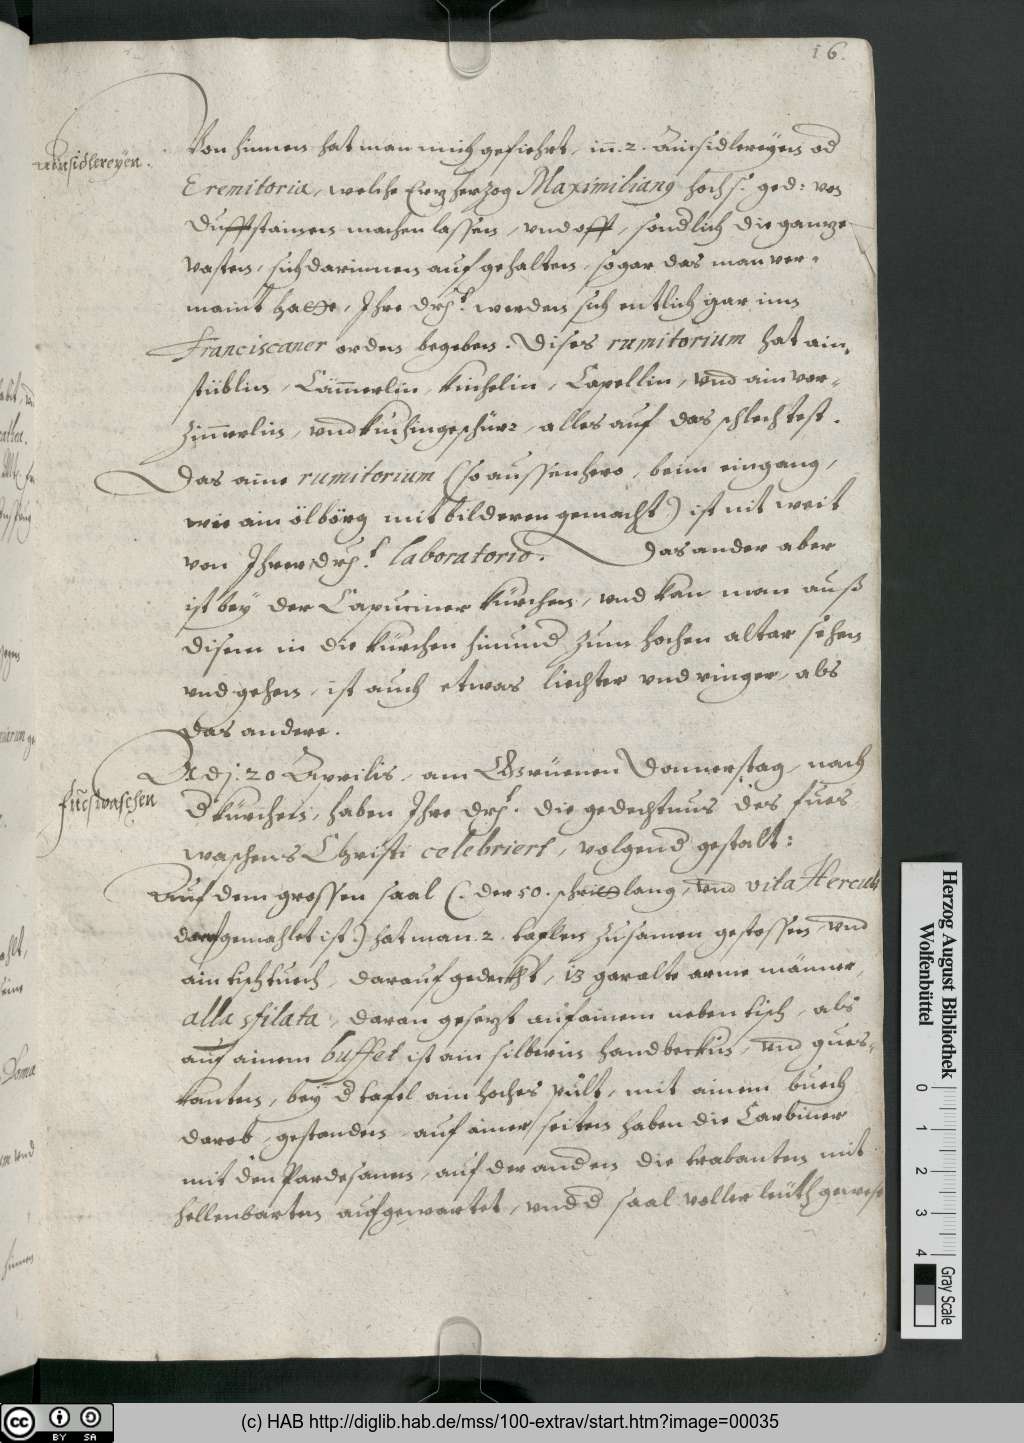 16.
Ainsidlereyen.
Von hinnen hat man mich gefiehrt, inn .2. Ainsidlereyen od
Eremitoria, welche Erzherzog Maximilianus hochs: ged: von
Dufftstainen machen lassen, vnd offt, sondlich die ganze
vasten, sich darinnen aufgehalten, sogar das man ver-
maint hatte, Ihre drht: werden sich entlich gar inn
Franciscaner orden begeben. Dises rumitorium hat ain
stüblin, Cämmerlin, kuchelin, Capellin, vnd ain vor-
zimmerlin, vnd kuchingeschürr, alles auf das schlechtest.
Das aine rumitorium (so aussenhero, beim eingang,
wie ain ölbörg mit bilderen gemacht) ist nit weit
von Ihrer drht: laboratorio. Das ander aber
ist bey der Capuciner kürchen, vnd kan man auß
disem in die kürchen hinund zum hochen altar sehen
vnd gehen, ist auch etwas liechter vnd ringer, als
das andere.
Adj. 20 Aprilis, am Grüenen Donnerstag, nach
fueswaschen
d kürchen, haben Ihre drht: die gedechtnus des fues
waschens Christi celebriert, volgend gestalt:
Auf dem grossen saal (. der 50. schritt lang, vnd vita Herculis
darauf gemahlet ist.) hat man .2. taflen zusamen gestossen, vnd
ain tischtuech, darauf gedeckht, 13 gar alte arme männer,
alla sfilata, daran gesezt auf ainem neben tisch, als
auf ainem buffet ist ain silberin handbeckin, vnd gues-
kanten, bey d tafel ain hoches pult, mit ainem buech
darob, gestanden auf ainer seiten haben die Carbiner
mit den Pardesanen, auf der anden die trabanten mit
hellenbarten aufgewartet, vnd d saal voller leüth gewest
Herzog August Bibliothek
Wolfenbüttel
0 1 2 3 4
Gray Scale
cc BY SA
(c) HAB http://diglib.hab.de/mss/100-extrav/start.htm?image=00035